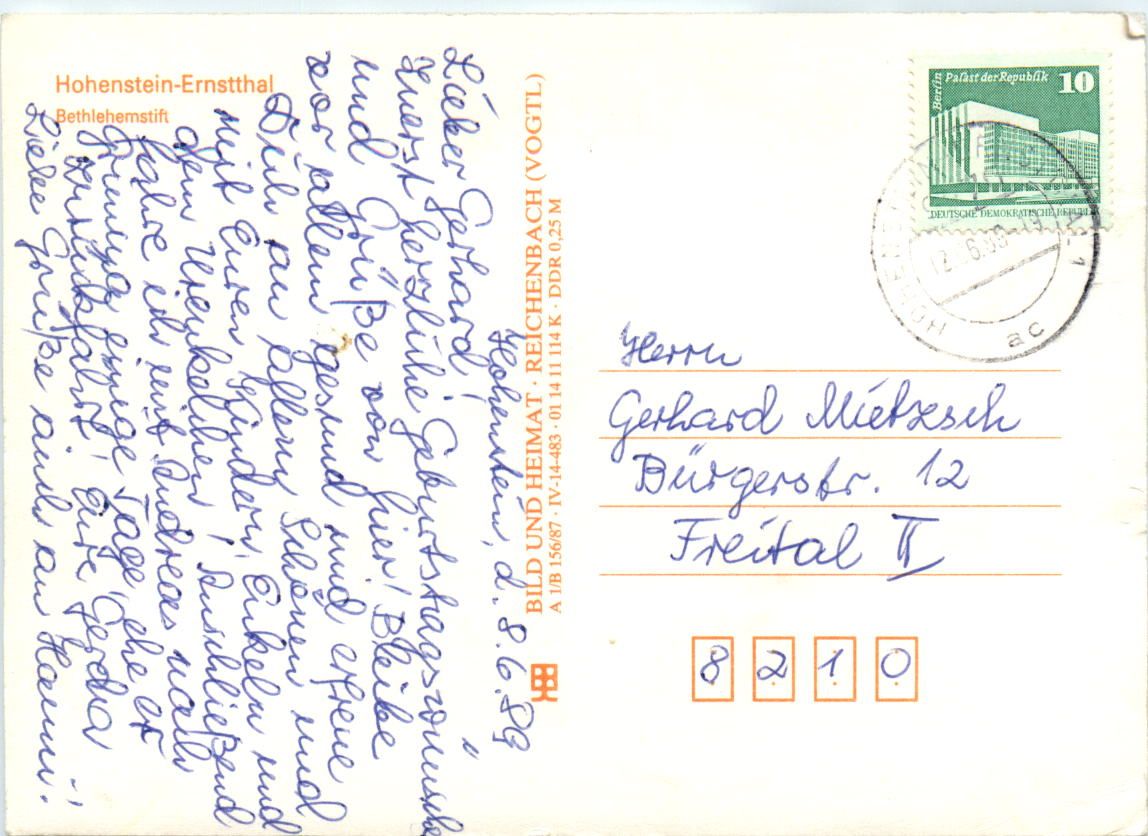 Hohenstein-Ernstthal
Bethlehemstift
Hohenstein, d. 8.6.89
Lieber Gerhard!
Zuerst herzliche Geburtstagswünsche
und Grüße von hier! Bleibe
vor allem gesund und erfreue
Dich an allem Schönen und
mit Euren Kindern, Enkeln und
dem Urenkelchen! Anschließend
fahre ich mit Andreas nach
einige Tage, ehe er
zurückfährt! Eure Gerda
Liebe Grüße auch an Hanni!
BILD UND HEIMAT · REICHENBACH (VOGTL)
A 1/B 156/87 · IV-14-483 · 01 14 11 114 K · DDR 0,25 M
Berlin Palast der Republik 10
DEUTSCHE DEMOKRATISCHE REPUBLIK
HOHEN
ac
Herrn
Gerhard Mietzsch
Bürgerstr. 12
Freital II
8210